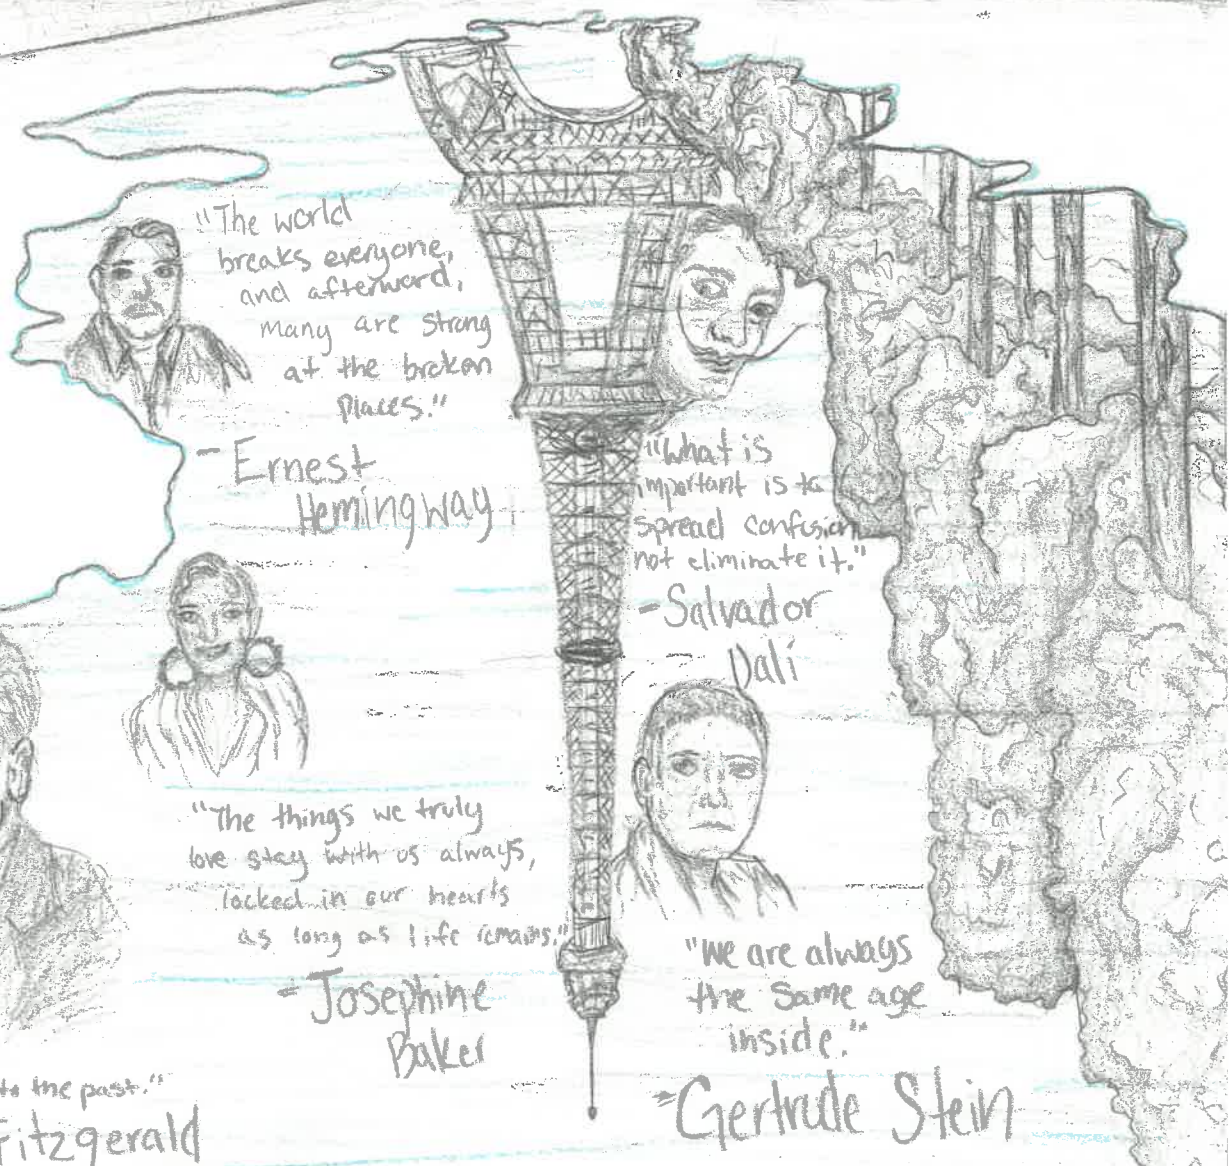 "The world
breaks everyone,
and afterward,
many are strong
at the broken
places."
- Ernest
Hemingway
"What is
important is to
spread confusion
not eliminate it."
- Salvador
Dali
"The things we truly
love stay with us always,
locked in our hearts
as long as life remains."
- Josephine
Baker
"We are always
the same age
inside."
- Gertrude Stein
to the past."
Fitzgerald